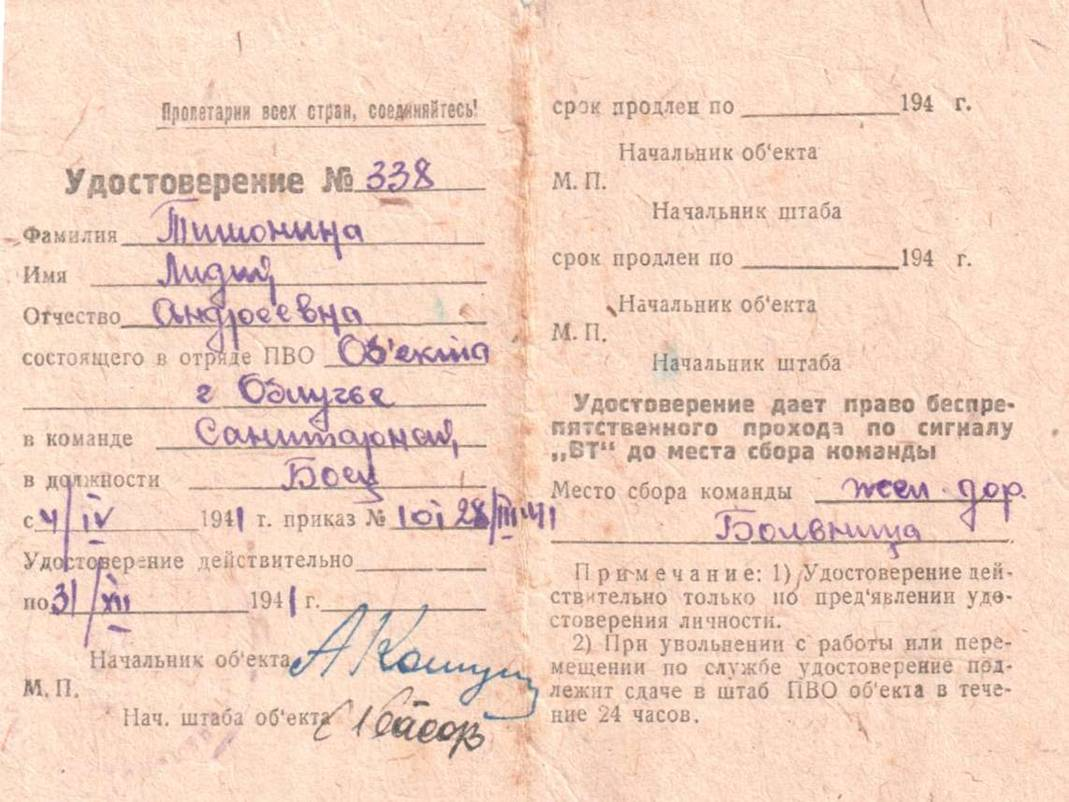 Пролетарии всех стран, соединяйтесь!
Удостоверение № 338
Фамилия Тишонина
Имя Лидия
Отчество Андреевна
состоящего в отряде ПВО Об'екта
г Облучье
в команде Санитарной
в должности Боец
с 4/IV 1941 г. приказ № 101 28/III-41
Удостоверение действительно
по 31/XII 1941 г.
Начальник об'екта
М. П.
Нач. штаба об'екта
срок продлен по 194 г.
Начальник об'екта
М. П.
Начальник штаба
срок продлен по 194 г.
Начальник об'екта
М. П.
Начальник штаба
Удостоверение дает право беспре-
пятственного прохода по сигналу
„ВТ“ до места сбора команды
Место сбора команды жел. дор.
Больница
Примечание: 1) Удостоверение дей-
ствительно только по пред'явлении удо-
стоверения личности.
2) При увольнении с работы или пере-
мещении по службе удостоверение под-
лежит сдаче в штаб ПВО об'екта в тече-
ние 24 часов.